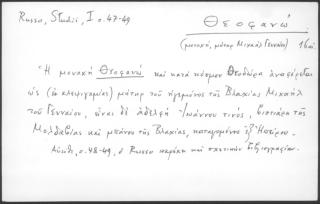 Russo, Studii, I σ. 47-49
Θεοφανώ
(μοναχή, μήτηρ Μιχαήλ Γενναίου) 16 αι.
Ἡ μοναχή Θεοφανώ καί κατά κόσμον Θεοδώρα ἀναφέρεται
ὡς (ἐκ κλεψιγαμίας) μήτηρ τοῦ ἡγεμόνος τῆς Βλαχίας Μιχαήλ
τοῦ Γενναίου, εἶναι δέ ἀδελφή Ἰωάννου τινός, βιστιάρη τῆς
Μολδαβίας καί μπάνου τῆς Βλαχίας, καταγομένου ἐξ Ἠπείρου.
Αὐτόθι, σ. 48-49, ὁ Russo καί σχετικήν βιβλιογραφίαν.